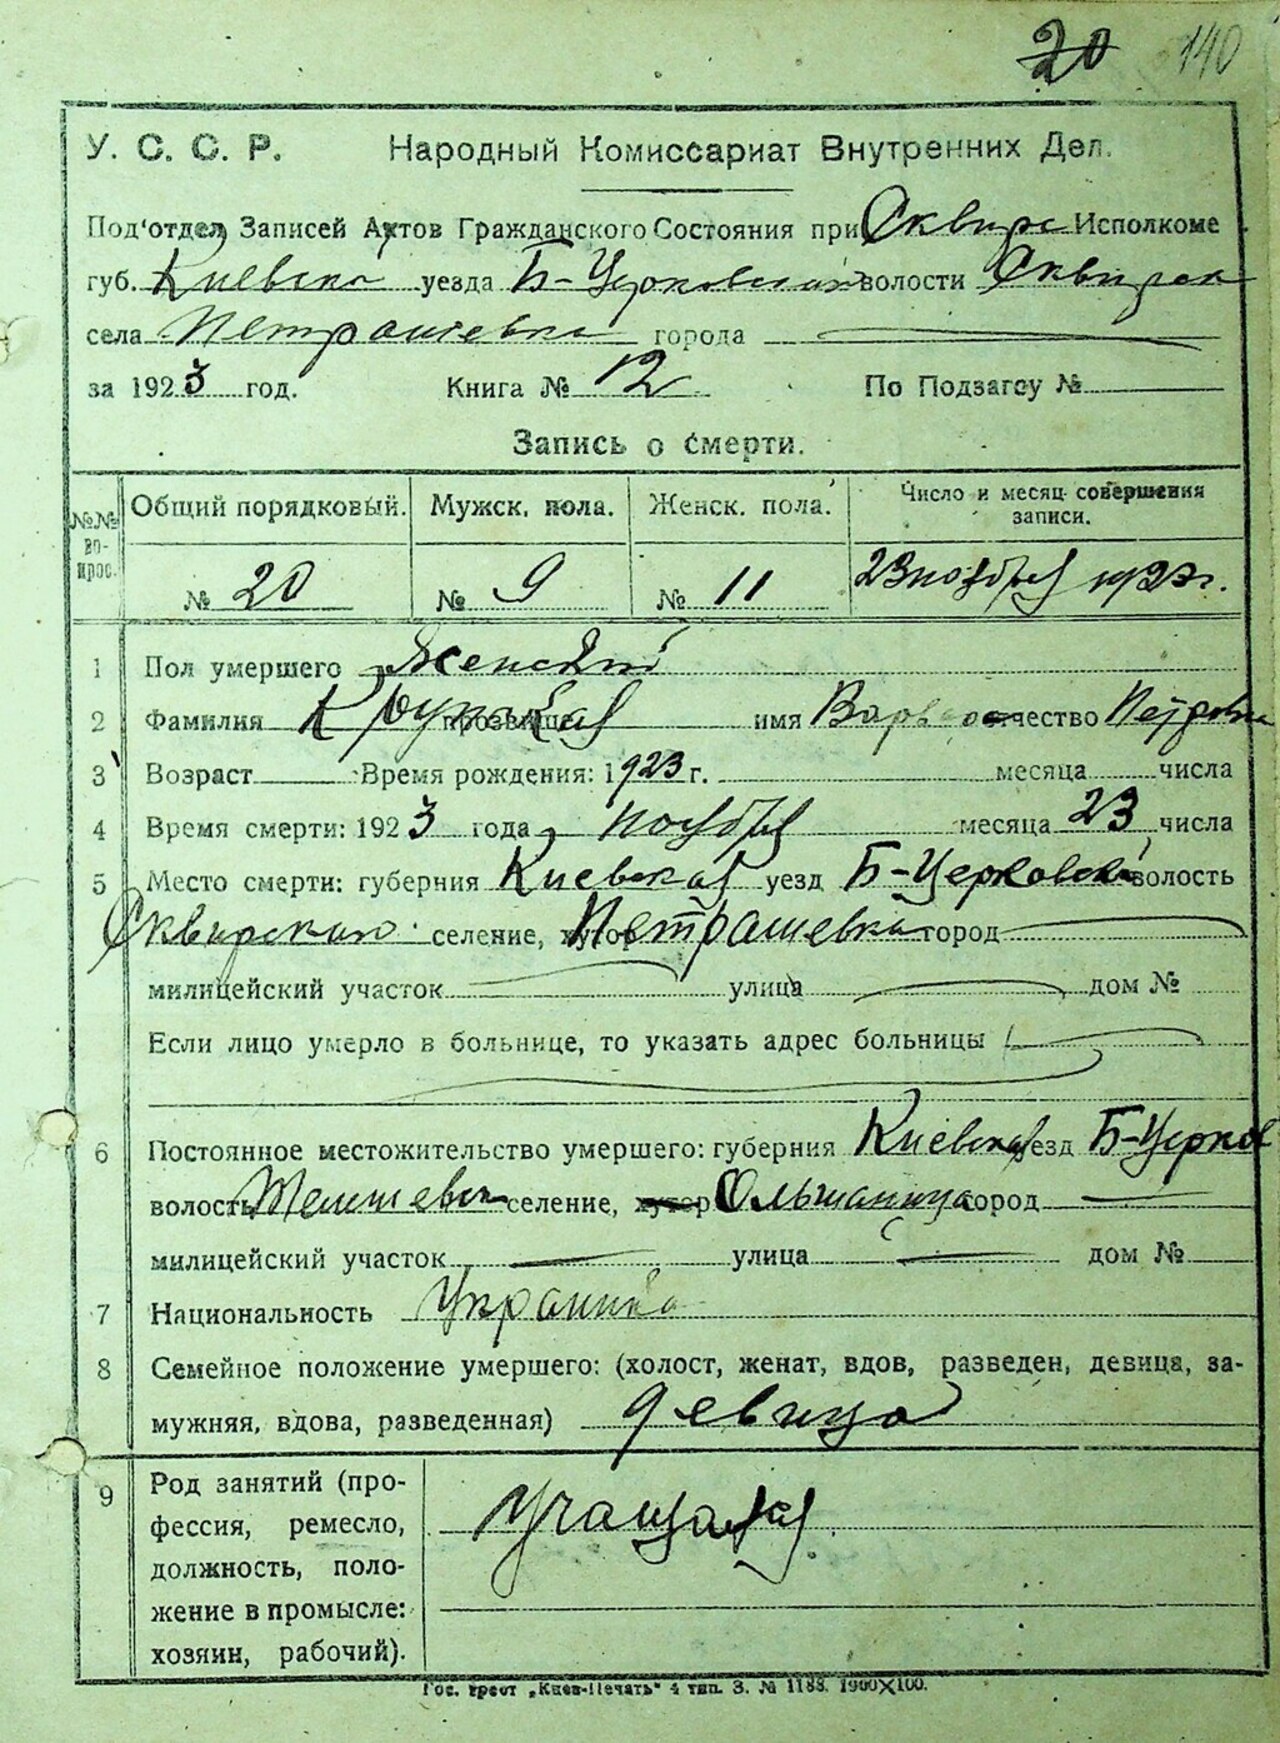 20 140
У. С. С. Р. Народный Комиссариат Внутренних Дел.
Под'отдел Записей Актов Гражданского Состояния при Сквирс Исполкоме
губ. Киевска уезда Б-Церковский волости Сквирск
села Петрашевка города
за 1923 год. Книга № 12 По Подзагсу №
Запись о смерти.
№№ вопрос. Общий порядковый. Мужск. пола. Женск. пола. Число и месяц совершения записи.
№ 20 № 9 № 11 23 ноября 1923 г.
1 Пол умершего Женский
2 Фамилия прозвище имя Варвара отчество Петровна
3 Возраст Время рождения: 1923 г. месяца числа
4 Время смерти: 1923 года ноября месяца 23 числа
5 Место смерти: губерния Киевская уезд Б-Церковский волость
Сквирская селение, хутор Петрашевка город
милицейский участок улица дом №
Если лицо умерло в больнице, то указать адрес больницы
6 Постоянное местожительство умершего: губерния Киевская уезд Б-Церков
волость селение, хутор Ольшаница город
милицейский участок улица дом №
7 Национальность Украинка
8 Семейное положение умершего: (холост, женат, вдов, разведен, девица, за-
мужняя, вдова, разведенная) девица
9 Род занятий (про-
фессия, ремесло, учащаяся
должность, поло-
жение в промысле:
хозяин, рабочий).
Гос. трест „Киев-Печать" 4 тип. З. № 1188. 1900X100.